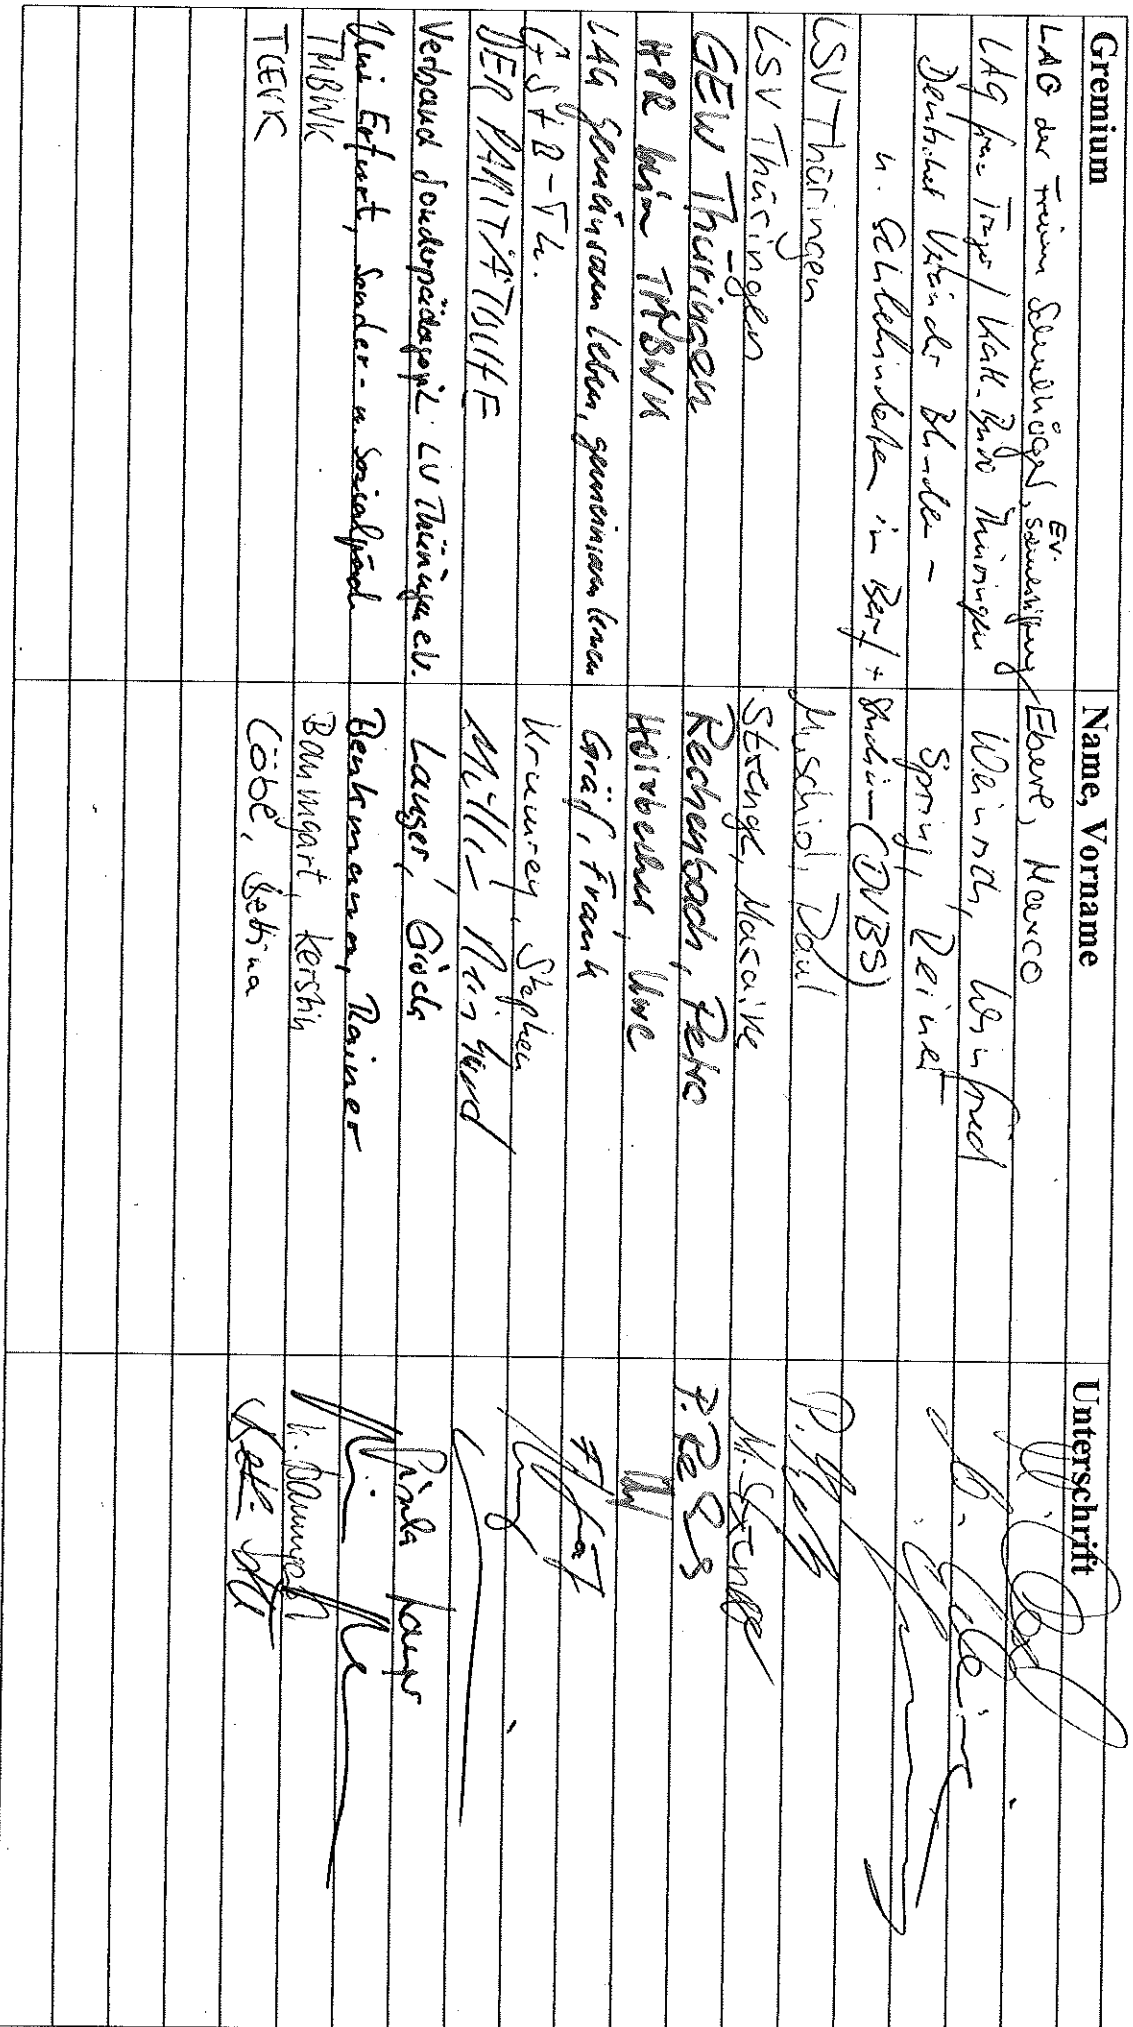 Gremium Name, Vorname Unterschrift
LAG der Freien Schulträger, Ev. Schulstiftung Ebert, Marco
LAG freie Träger / Kath. Büro Thüringen Weinrich, Winfried
Deutscher Verein der Blinden - Spring, Reiner
u. Sehbehinderten in Beruf + Studium (DVBS)
LSV Thüringen Mischiol, Paul P.
LSV Thüringen Stenge, Mareike M. Stenge
GEW Thüringen Rechenbach, Petra P.
HPR beim TMBWK Uwe
LAG gemeinsam leben, gemeinsam lernen Gräf, Frank F. Gräf
GStB-Th. Krumrey, Stephen
DER PARITÄTISCHE Müller Reinhard
Verband Sonderpädagogik LV Thüringen e.V. Langer, Gisela Gisela Langer
Uni Erfurt, Sonder- u. Sozialpäd. Benkmann, Rainer
TMBWK Baumgart, Kerstin K. Baumgart
TLEVK Löbe, Bettina